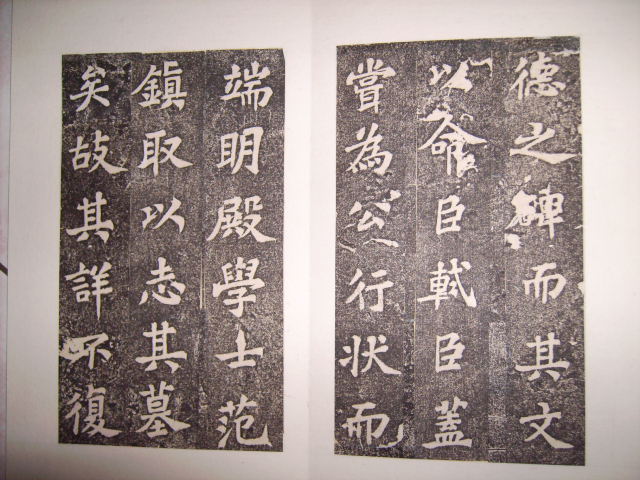 德之碑而其文
以命臣軾臣蓋
嘗為公行狀而
端明殿學士范
鎮取以志其墓
矣故其詳不復